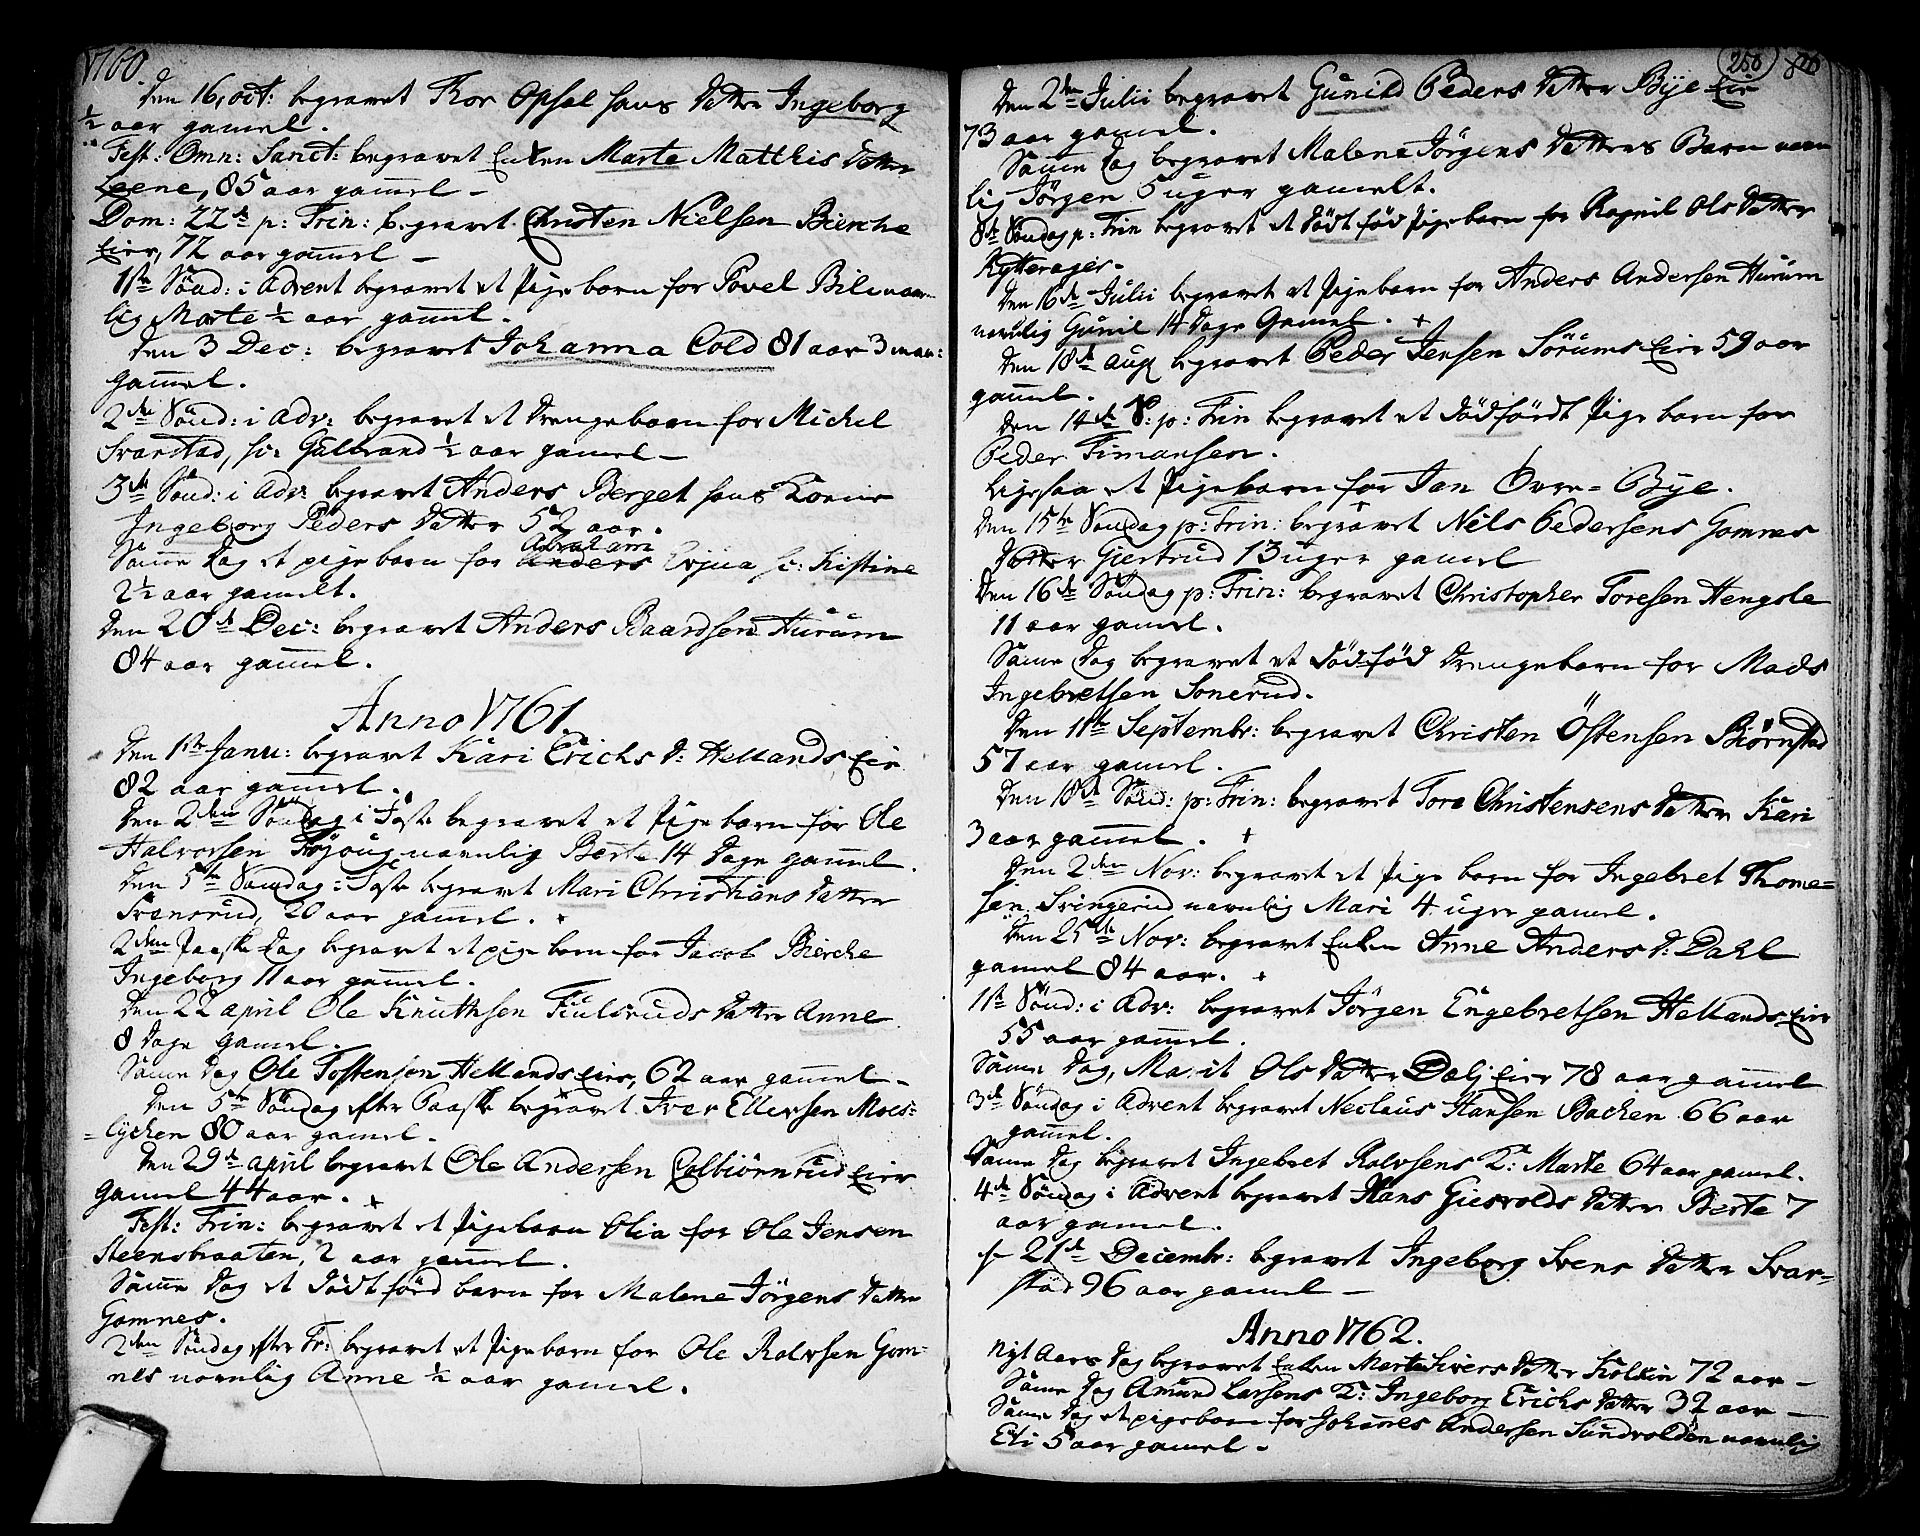 1760.
Den 16, oct: begravet Thor Opsal hans Datter Ingeborg
½ aar gamel.
Fest: Omn: Sanct: begravet Enken Marte Matthis Datter
Leene, 85 aar gamel –
Dom: 22de p: Trin: begravet Christen Nielsen Bierche
Eier, 72 aar gamel –
1ste Sönd: i Advent begravet et Pige barn for Povel Bili navn-
lig Marte ½ aar gamel.
Den 3 Dec: begravet Johanna Cold 81 aar 3 man:
gamel.
2den Sönd: i Adv: begravet et Drengebarn for Michel
Svarstad, sc: Gulbrand ½ aar gamel –
3de Sönd: i Adv: begravet Anders Berget hans Konne
Ingeborg Peders Datter 52 aar.
Abraham
Samme Dag et pige barn for Anders Evjua sc: Kistine
2½ aar gamelt.
Den 20de Dec: begravet Anders Baardsen Hurum
84 aar gamel.
Anno 1761.
Den 1ste Janu: begravet Kari Erichs D: Hellands Eie
82 aar gamel.
Den 2den Söndag i Faste begravet et Pige barn for Ole
Halvorsen navnlig Berte 14 Dage gamel.
Den 5te Søndag i Faste begravet Mari Christians Datter
Svensrud, 20 aar gamel. +
2den Paaske Dag begravet et pige barn for Jacob Bierche
Ingeborg 11 aar gamel.
Den 22 april Ole Knuthsen Fiulsruds Datter Anne
8 Dage gamel.
Samme Dag Ole Tostensen Hellands Eier, 62 aar gamel –
Den 5te Söndag efter Paaske begravet Iver Ellevsen Moes-
=lychen 80 aar gamel.
Den 29de april begravet Ole Andersen Colbiörnrud Eier
gamel 44 aar. +
Fest: Trin: begravet et Pigebarn Olia for Ole Jensen
Steensbraaten, 2 aar gamel.
Samme Dag et Dödtförd barn for Malene Jörgens Datter
Gomnes.
2den Söndag efter Tr: begravet et Pige barn for Ole Rolvsen Gom-
nes navnlig Anne ½ aar gamel.
250
Den 2den Julii begravet Gunild Peders Datter Bye Eie
73 aar gamel.
Samme Dag begravet Malene Jörgens Datters Barn navn
lig Jörgen 5 uger gamelt.
8de Søndag p: Trin begravet et Dödt föd Pigebarn for Ragnil Ols Datter
Rytterager.
Den 16de Julii begravet et Pige barn for Anders Andersen Hurum
navnlig Gunil 14 Dage Gamel. +
Den 18de Aug begravet Peder Jensen Sörums Eie 59 aar
gamel.
Den 14de S: p: Trin begravet et dödfördt Pige barn for
Peder Timansen.
Ligesaa et Pigebarn for Jan Övre = Bye.
Den 15te Søndag p: Trin: begravet Nils Pedersens Gomnes
Datter Giertrud 13 uger gamel
Den 16de Söndag p: Trin: begravet Christopher Toresen Hengsle
11 aar gamel.
Samme Dag begravet et död föd Drengebarn for Mads
Ingebretsen Sonerud.
Den 11te Septembr: begravet Christen Östensen Biørnstad
57 aar gamel.
Den 18de Sönd: p: Trin: begravet Tore Christensens Datter Kari
3 aar gamel. +
Den 2den Nov: begravet et Pige barn for Ingebret Thome=
sen Svingerud navnlig Mari 4 uger gamel.
Den 25de Nov: begravet Enken Anne Anders D: Dahl
gamel 84 aar. +
1ste Sönd: i Adv: begravet Jörgen Engebretsen Hellands Eier
55 aar gamel.
Samme Dag, Marit Ols Datter Dælj Eier 78 aar gamel
3de Söndag i Advent begravet Neclaus Hansen Bachen 66 aar
gamel.
Samme Dag begravet Ingebret Rolvsens K: Marte 64 aar gamel.
4de Söndag i Advent begravet Hans Giesvolds Datter Berte 7
aar gamel.
21de Decembr: begravet Ingeborg Svens Datter Svar=
stad 96 aar gamel –
Anno 1762.
Nyt Aars Dag begravet Enken Marte Sivers Datter Kolkin 72 aar –
Samme Dag Amund Larsens K: Ingeborg Erichs Datter 32 aar –
Samme Dag et pigebarn for Johannes Andersen Sundvolden navnlig
Eli 5 aar gamel.